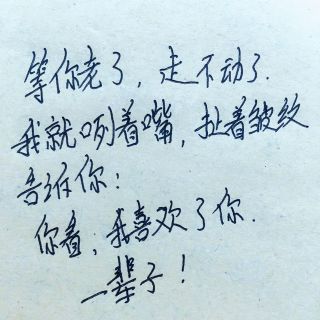 等你老了，走不动了.
我就咧着嘴，扯着皱纹
告诉你：
你看，我喜欢了你.
一辈子！